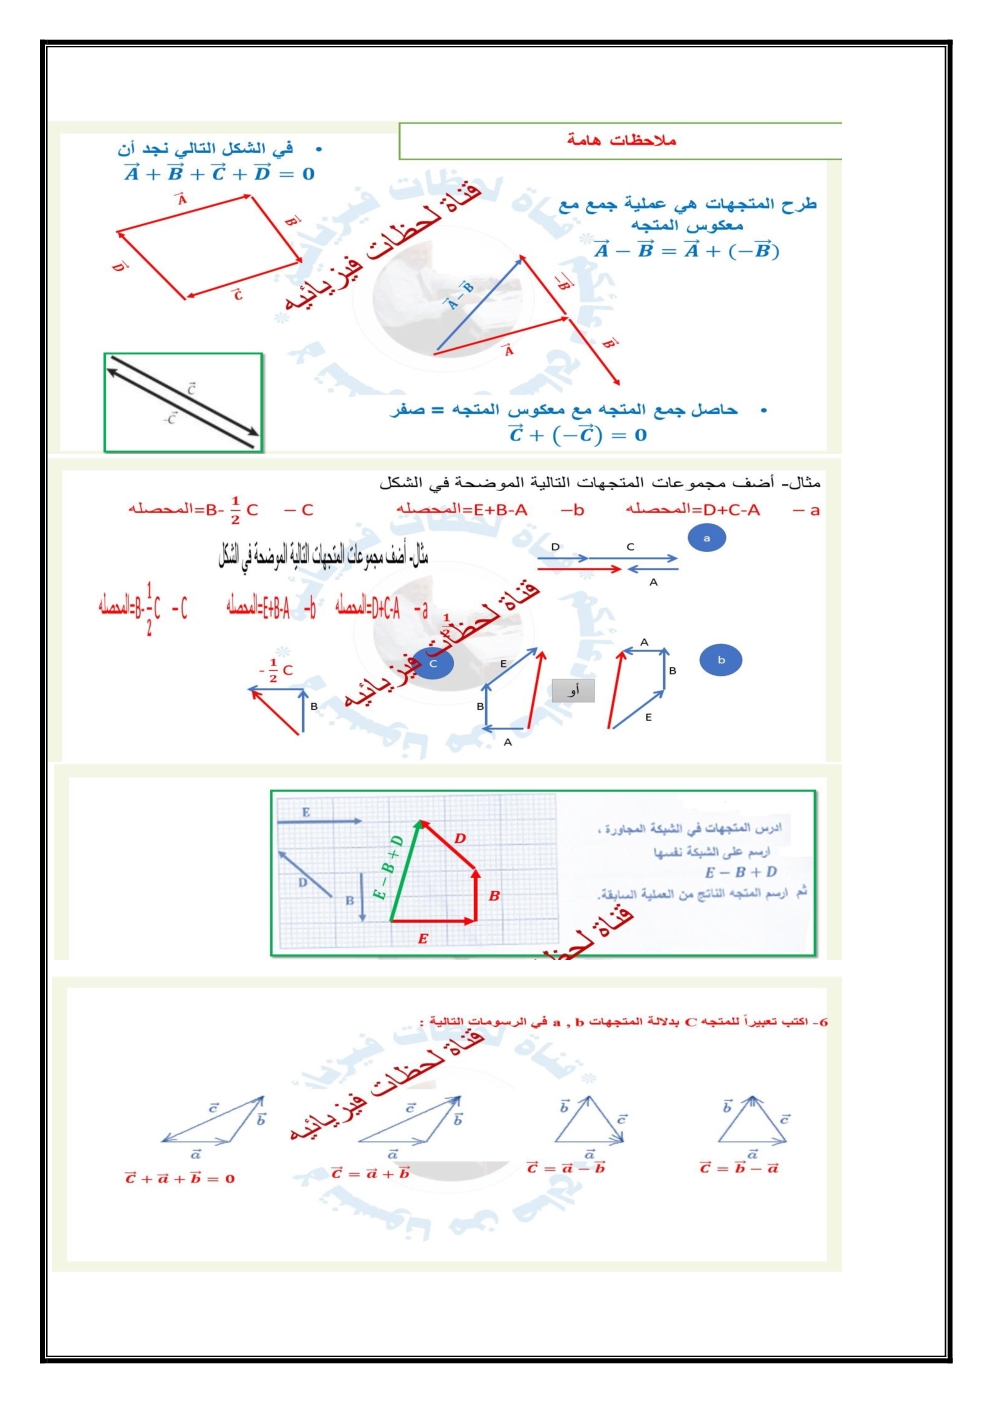 ملاحظات هامة
• في الشكل التالي نجد أن
A⃗ + B⃗ + C⃗ + D⃗ = 0
A⃗
B⃗
C⃗
D⃗
طرح المتجهات هي عملية جمع مع
معكوس المتجه
A⃗ − B⃗ = A⃗ + (−B⃗)
A⃗ − B⃗
−B⃗
A⃗
B⃗
قناة لحظات فيزيائيه
C⃗
-C⃗
• حاصل جمع المتجه مع معكوس المتجه = صفر
C⃗ + (−C⃗) = 0
مثال- أضف مجموعات المتجهات التالية الموضحة في الشكل
a – المحصله=D+C-A b– المحصله=E+B-A C – المحصله=B- 1/2 C
مثال- أضف مجموعات المتجهات التالية الموضحة في الشكل
a – المحصله=D+C-A b– المحصله=E+B-A C – المحصله=B- 1/2 C
a
D C
A
قناة لحظات فيزيائيه
1/2
b
A
B
E
أو
E
B
A
C
- 1/2 C
B
ادرس المتجهات في الشبكة المجاورة ،
ارسم على الشبكة نفسها
E − B + D
ثم ارسم المتجه الناتج من العملية السابقة.
E
D
B
E − B + D
D
B
E
قناة لحظ
6- اكتب تعبيراً للمتجه C بدلالة المتجهات a , b في الرسومات التالية :
قناة لحظات فيزيائيه
b⃗ c⃗ a⃗
C⃗ = b⃗ − a⃗
b⃗ c⃗ a⃗
C⃗ = a⃗ − b⃗
c⃗ b⃗ a⃗
C⃗ = a⃗ + b⃗
c⃗ b⃗ a⃗
C⃗ + a⃗ + b⃗ = 0